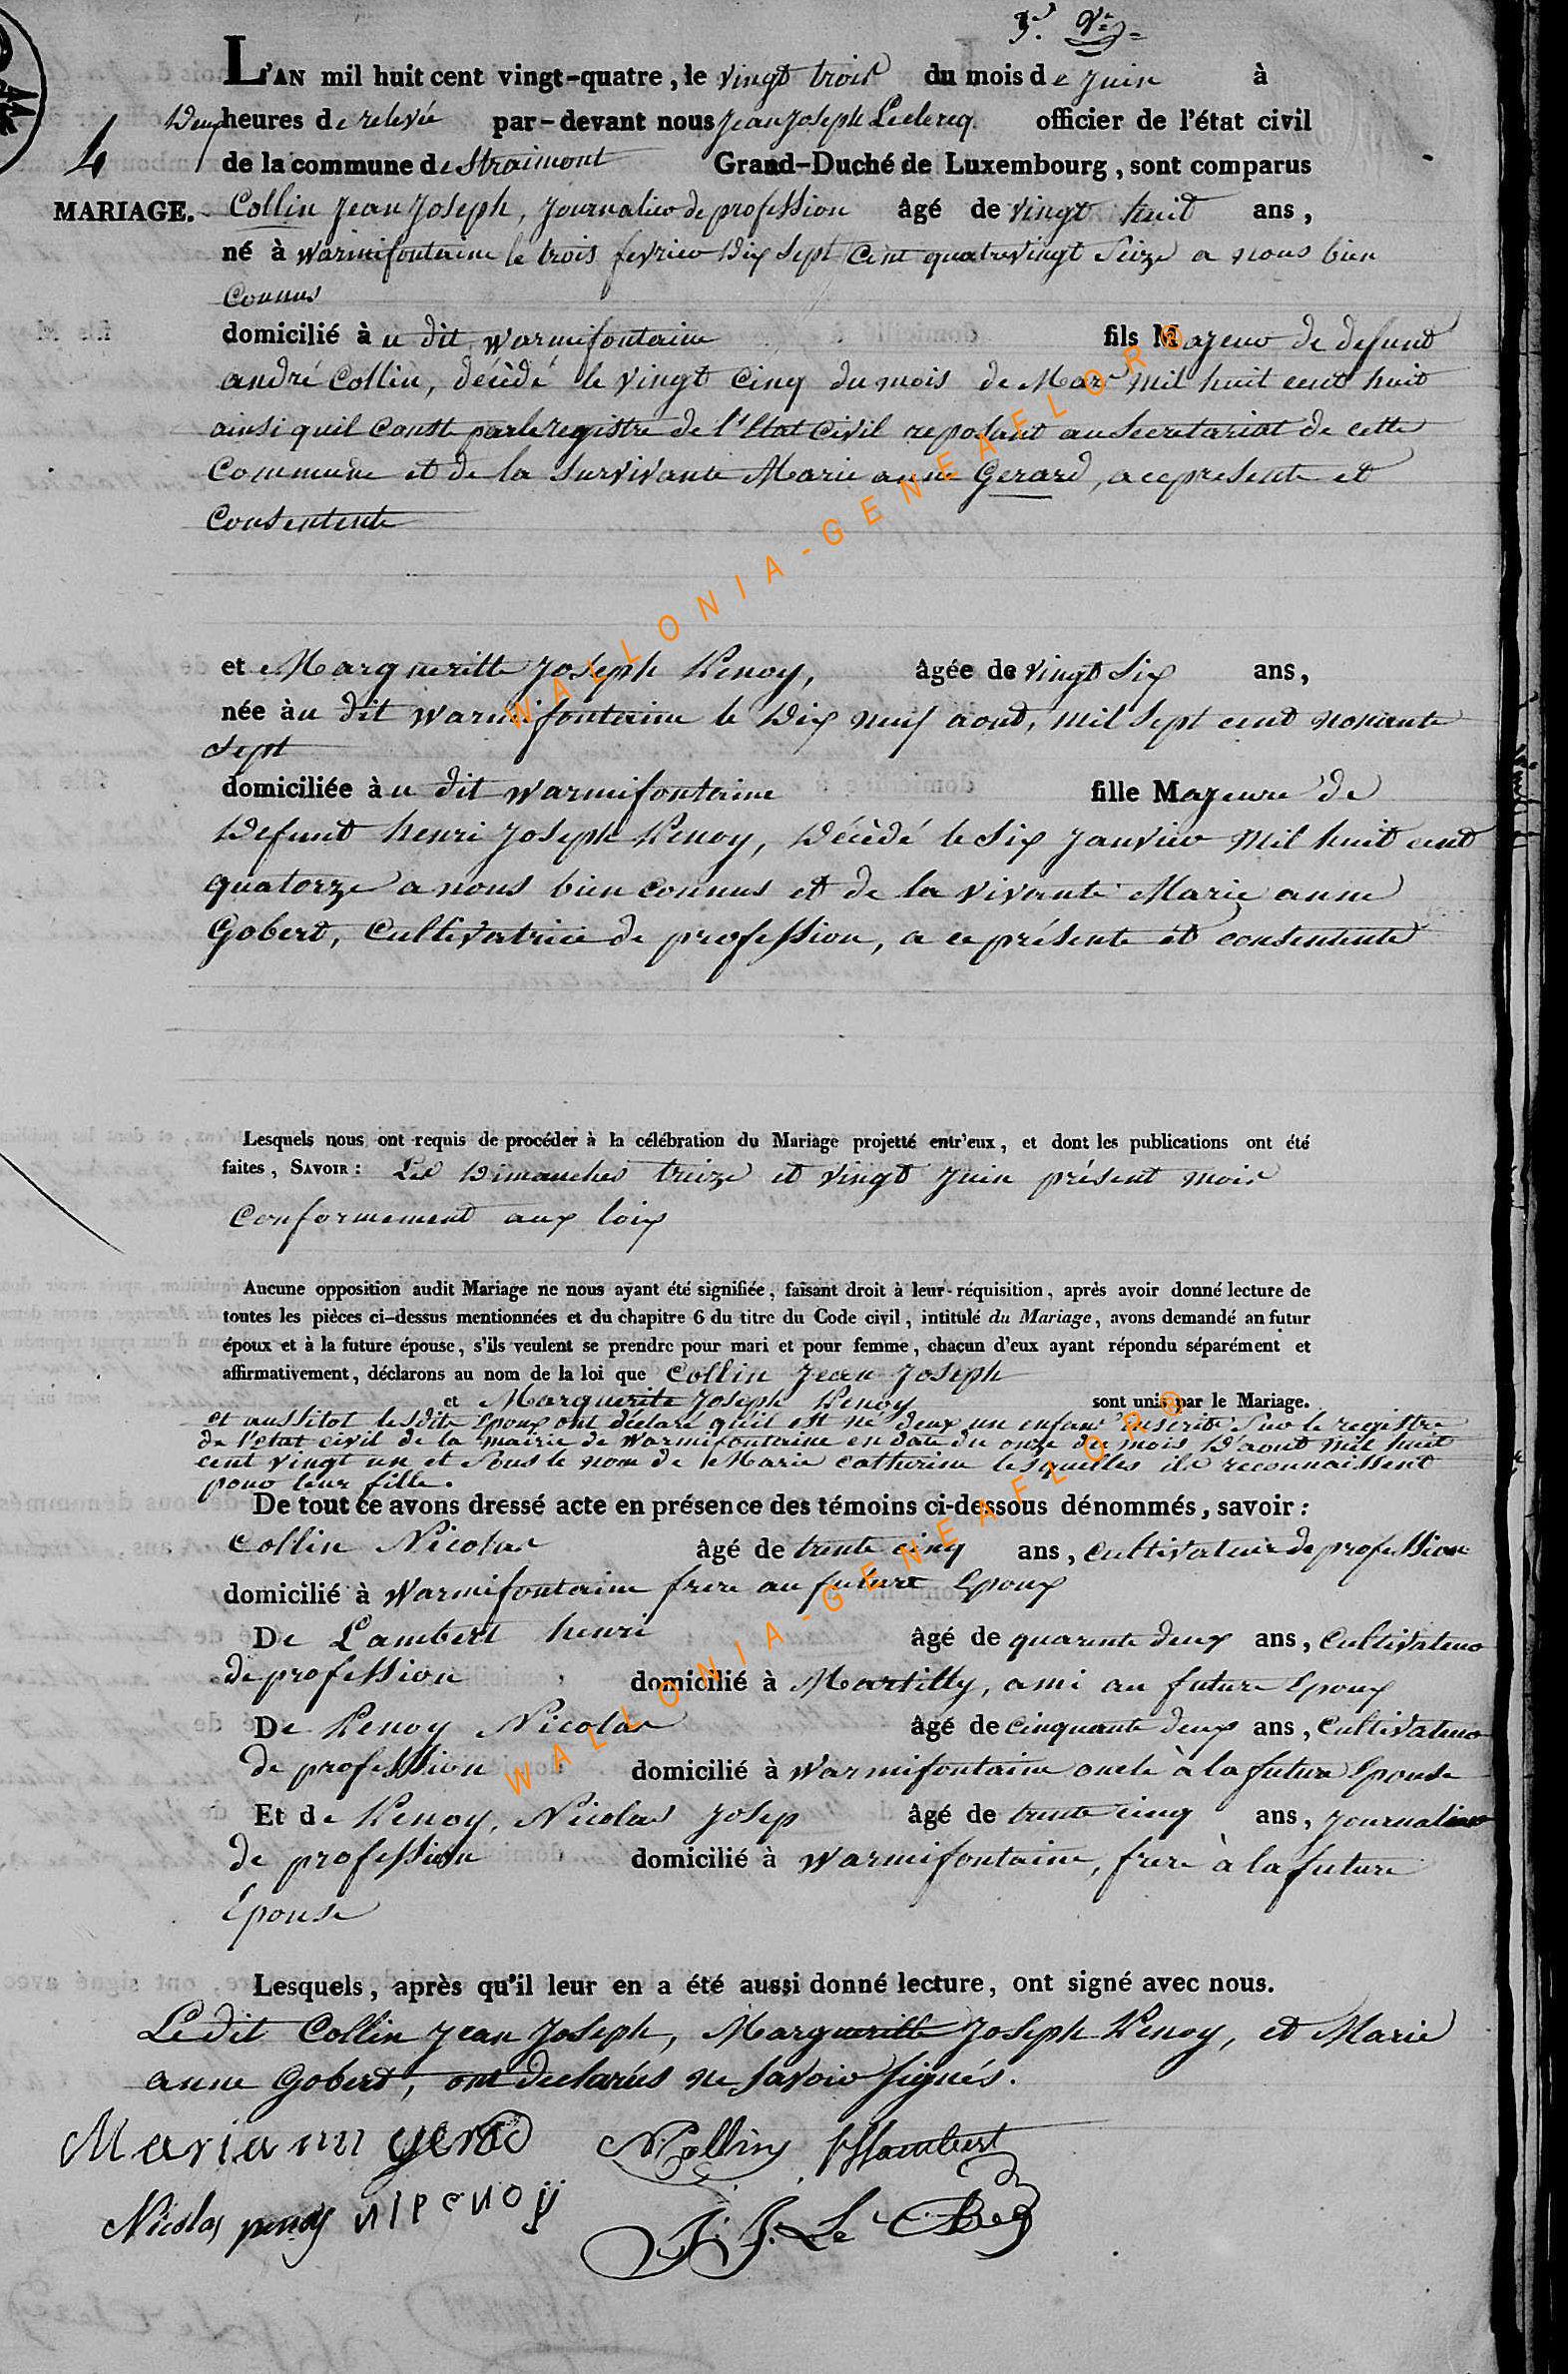 L'AN mil huit cent vingt-quatre, le vingt trois du mois de juin à
Deux heures de relevée par-devant nous Jean Joseph Leclercq officier de l'état civil
de la commune de Straimont Grand-Duché de Luxembourg, sont comparus
4
MARIAGE. Collin Jean Joseph, journalier de profession âgé de vingt huit ans,
né à Warmifontaine le trois fevrier Dix Sept Cent quatrevingt Seize a nous bien
Connus
domicilié à u dit Warmifontaine fils Majeur de defunt
andré Collin, décèdé le vingt Cinq du mois de Mars mil huit cent huit
ainsi quil Const par le registre de l'Etat Civil reposant au Secretariat de cette
Commune et de la Survivante Marie anne Gerard, a ce presente et
Consentente
et Margueritte Joseph Penoy, âgée de vingt Six ans,
née àu dit Warmifontaine le Dix neuf aout, mil Sept cent nonante
Sept
domiciliée àu dit Warmifontaine fille Majeure de
Defunt henri Joseph Penoy, Décèdé le Six Janvier mil huit cent
quatorze a nous bien Connus et de la vivante Marie anne
Gobert, Cultivatrice de profession, a ce présente et consentente
Lesquels nous ont requis de procéder à la célébration du Mariage projetté entr'eux, et dont les publications ont été
faites, SAVOIR : Les Dimanches treize et vingt Juin présent mois
Conformement aux loix
Aucune opposition audit Mariage ne nous ayant été signifiée, faisant droit à leur réquisition, après avoir donné lecture de
toutes les pièces ci-dessus mentionnées et du chapitre 6 du titre du Code civil, intitulé du Mariage, avons demandé an futur
époux et à la future épouse, s'ils veulent se prendre pour mari et pour femme, chacun d'eux ayant répondu séparément et
affirmativement, déclarons au nom de la loi que Collin Jean Joseph
et Marguerite Joseph Penoy sont unis par le Mariage.
et aussitot lesdits Epoux ont déclaré qu'il est né deux un enfant inscrite Sur le registre
de l'etat civil de la mairie de Warmifontaine en date du onze du mois D'aout mil huit
cent vingt un et Sous le nom de Marie Catherine lesquelles ils reconnaissent
pour leur fille.
De tout ce avons dressé acte en présence des témoins ci-dessous dénommés, savoir :
Collin Nicolas âgé de trente cinq ans, Cultivateur de profession
domicilié à Warmifontaine frere au future Epoux
De Lambert henri âgé de quarente deux ans, Cultivateur
de profession domicilié à Martilly, ami au future Epoux
De Penoy Nicolas âgé de cinquante deux ans, Cultivateur
de profession domicilié à Warmifontaine oncle à la future Epouse
Et de Penoy, Nicolas Josep âgé de trente cinq ans, journalier
de profession domicilié à Warmifontaine, frere à la future
Epouse
Lesquels, après qu'il leur en a été aussi donné lecture, ont signé avec nous.
Le dit Collin Jean Joseph, Margueritte Joseph Penoy, et Marie
anne Gobert, ont declarées ne Savoir Signés.
Mariann gerard N Collin H Lambert
Nicolas penoy nipenoy J. J. Le Clercq
WALLONIA-GENEAFLOR®
WALLONIA-GENEAFLOR®